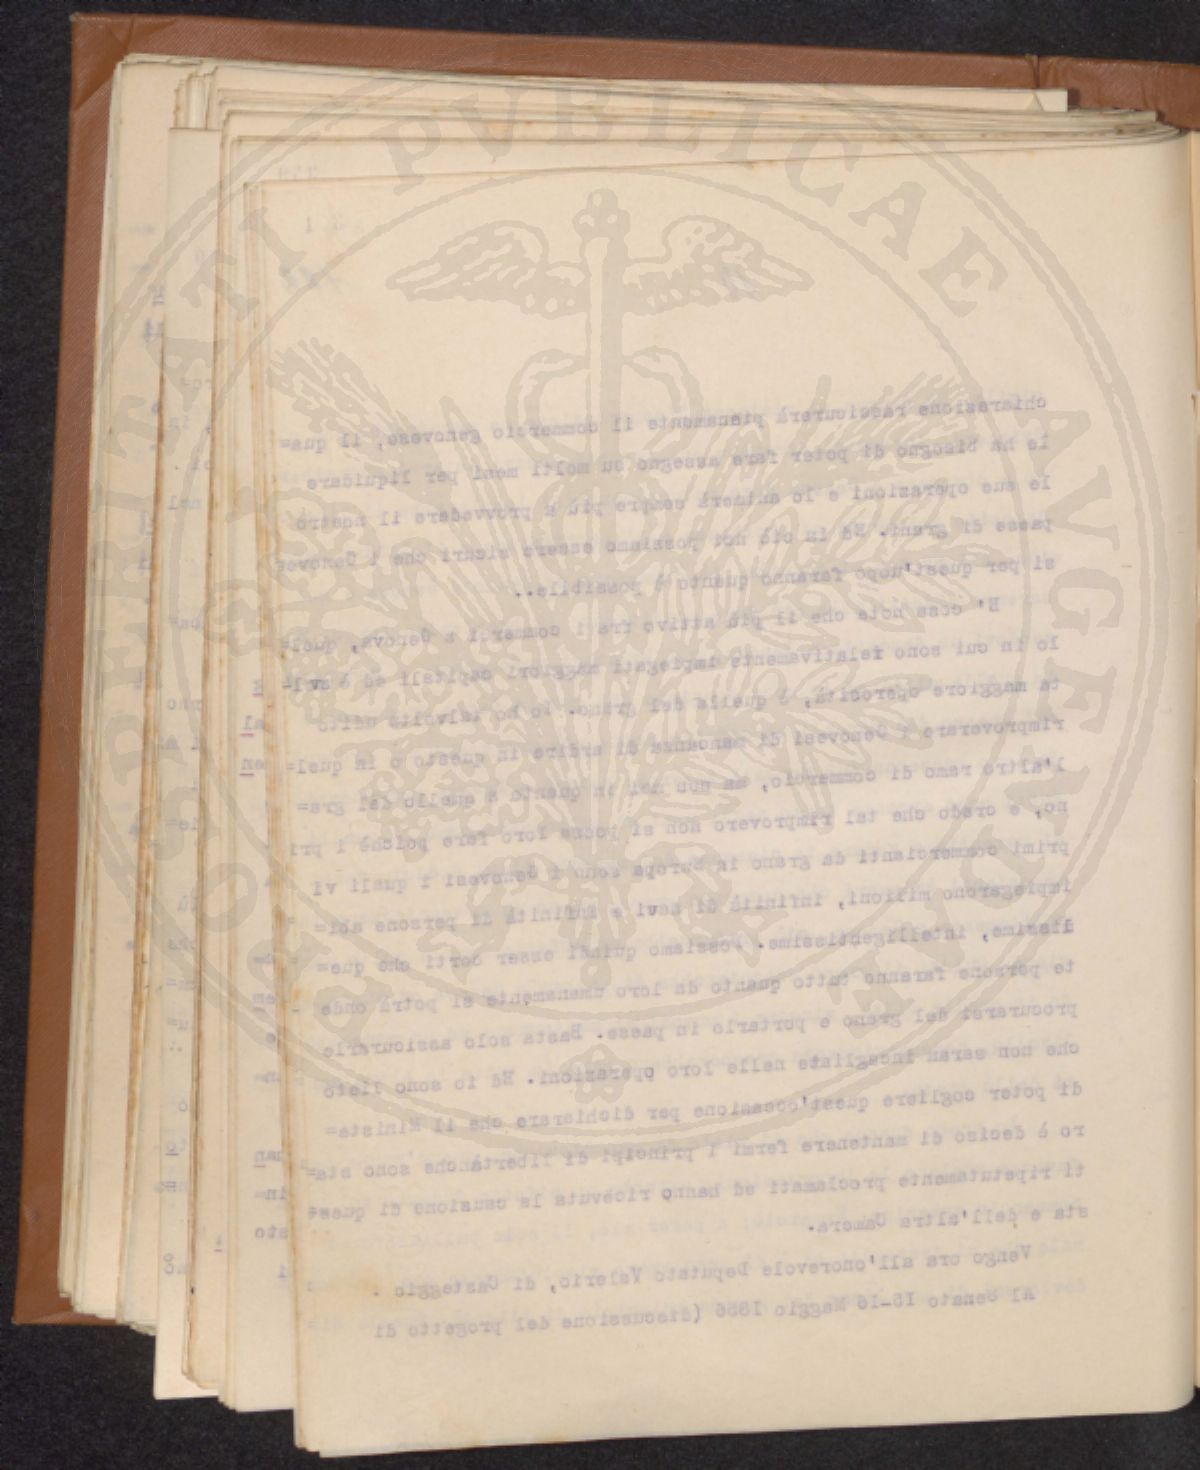 chiarazione rassicurerà pienamente il commercio genovese, il qua=
le ha bisogno di poter fare assegno su molti mesi per liquidare
le sue operazioni e lo animerà sempre più a provvedere il nostro
paese di grani. Ed in ciò noi possiamo essere sicuri che i Genove=
si per quest'uopo faranno quanto è possibile..
E' cosa nota che il più attivo fra i commerci a Genova, quel=
lo in cui sono relativamente impiegati maggiori capitali ed è avi=
ta maggiore operosità, è quella del grano. Io ho talvolta udito
rimproverare i Genovesi di mancanza di ardire in questo o in quel=
l'altro ramo di commercio, ma non mai in quanto a quello del gra=
no, e credo che tal rimprovero non si possa loro fare poichè i pri
primi commercianti da grano in Europa sono i Genovesi i quali vi
impiegarono milioni, infinità di navi e infinità di persone abi=
dissime, intelligentissime. Possiamo quindi esser certi che que=
te persone faranno tutto quanto da loro umanamente si potrà onde
procurarsi del grano e portarlo in paese. Basta solo assicurarle
che non saran incagliate nelle loro operazioni. Ed io sono lieto
di poter cogliere quest'occasione per dichiarare che il Ministe=
ro è deciso di mantenere fermi i principi di libertàche sono sta=
ti ripetutamente proclamati ed hanno ricevuta la sanzione di ques=
sta e dell'altra Camera.
Vengo ora all'onorevole Deputato Valerio, di Casteggio .
Al Senato 15-16 Maggio 1856 (discussione del progetto di
PROSPERITATI PVBLICAE AVGENDAE